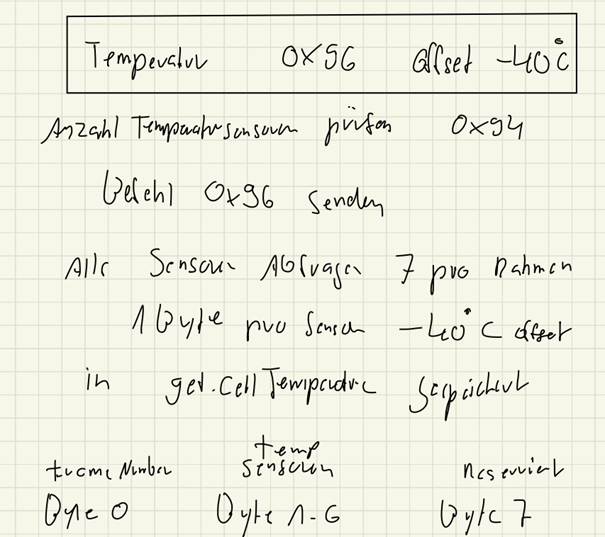 Temperatur 0x96 Offset -40°C
Anzahl Temperatursensoren prüfen 0x94
Befehl 0x96 senden
Alle Sensoren Abfragen 7 pro Rahmen
1 Byte pro Sensor -40°C offset
in get.CellTemperature gespeichert
frame Number temp sensoren Reserviert
Byte 0 Byte 1-6 Byte 7